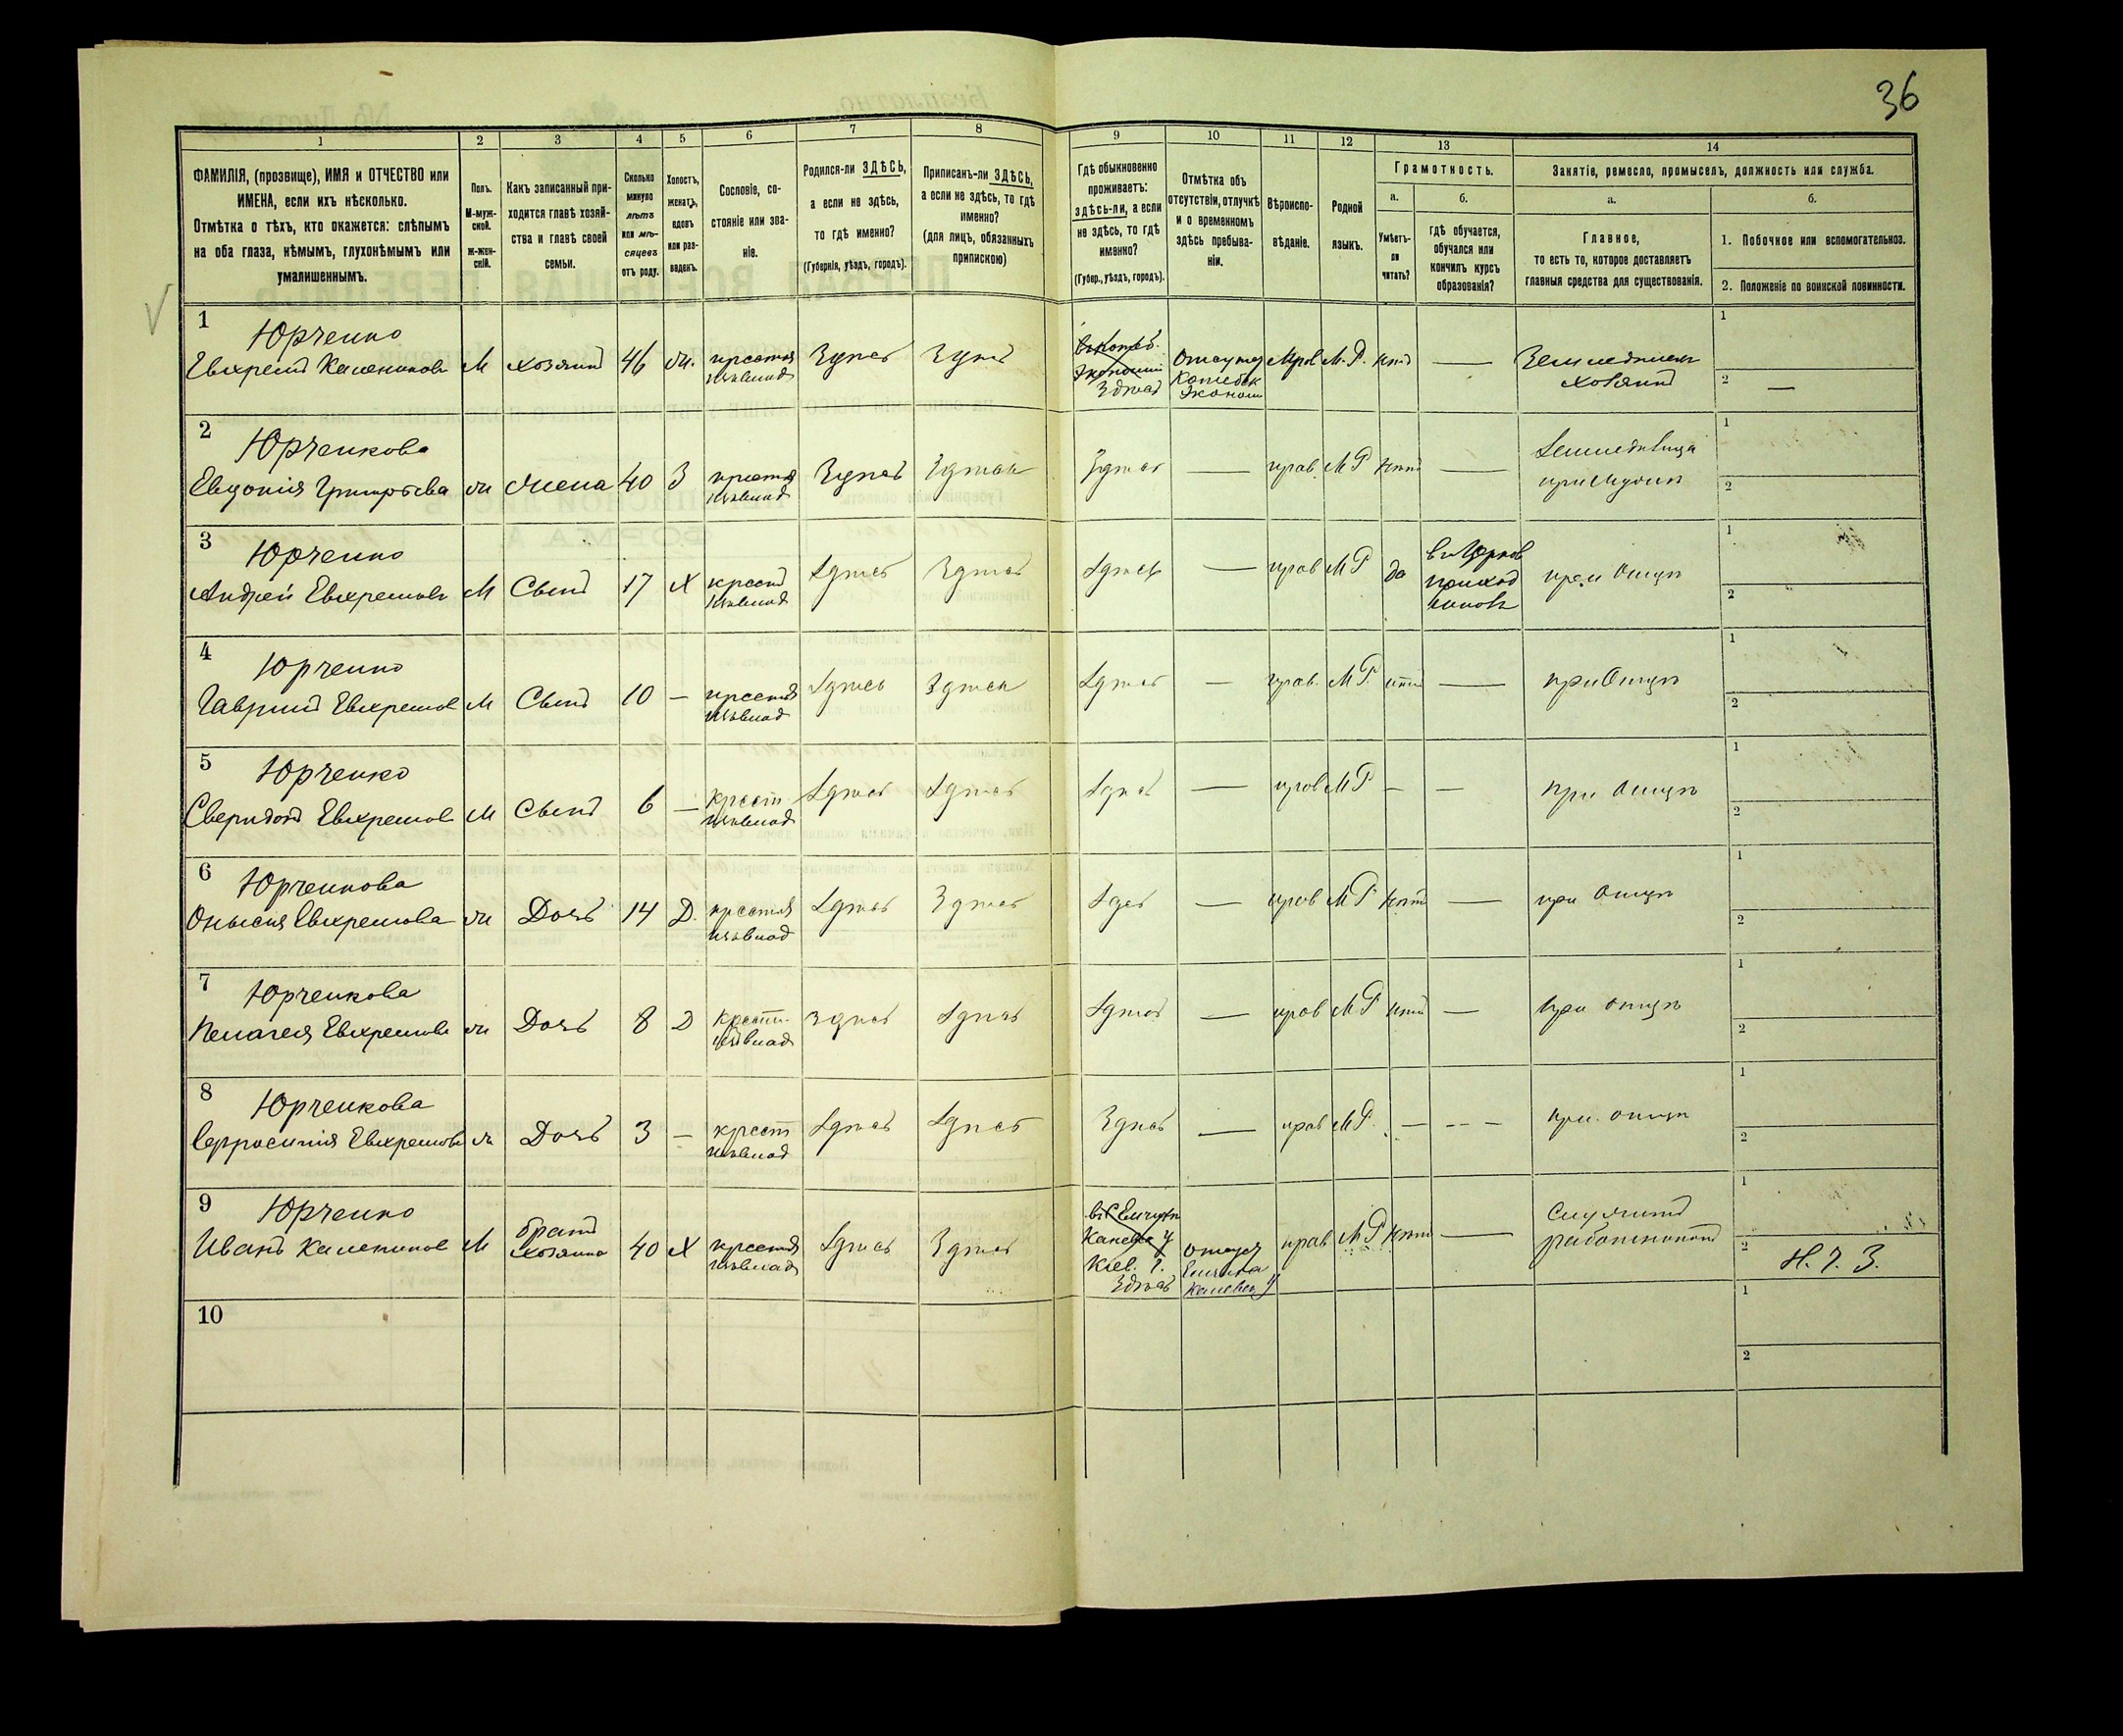 36
1 2 3 4 5 6 7 8 9 10 11 12 13 14
ФАМИЛІЯ, (прозвище), ИМЯ и ОТЧЕСТВО или
ИМЕНА, если ихъ нѣсколько.
Отмѣтка о тѣхъ, кто окажется: слѣпымъ
на оба глаза, нѣмымъ, глухонѣмымъ или
умалишеннымъ.
Полъ.
М-муж-
ской.
ж-жен-
скій.
Какъ записанный при-
ходится главѣ хозяй-
ства и главѣ своей
семьи.
Сколько
минуло
лѣтъ
или мѣ-
сяцевъ
отъ роду.
Холостъ,
женатъ,
вдовъ
или раз-
веденъ.
Сословіе, со-
стояніе или зва-
ніе.
Родился-ли ЗДѢСЬ,
а если не здѣсь,
то гдѣ именно?
(Губернія, уѣздъ, городъ).
Приписанъ-ли ЗДѢСЬ,
а если не здѣсь, то гдѣ
именно?
(для лицъ, обязанныхъ
припискою)
Гдѣ обыкновенно
проживаетъ:
здѣсь-ли, а если
не здѣсь, то гдѣ
именно?
(Губер., уѣздъ, городъ).
Отмѣтка объ
отсутствіи, отлучкѣ
и о временномъ
здѣсь пребыва-
ніи.
Вѣроиспо-
вѣданіе.
Родной
языкъ.
Грамотность.
а.
Умѣетъ-
ли
читать?
б.
гдѣ обучается,
обучался или
кончилъ курсъ
образованія?
Занятіе, ремесло, промыселъ, должность или служба.
а.
Главное,
то есть то, которое доставляетъ
главныя средства для существованія.
б.
1. Побочное или вспомогательное.
2. Положеніе по воинской повинности.
1 Юрченко
Евхремъ Калениковъ М хозяинъ 46 ж. крестья
изъ влад
Здѣсь Здѣсь
Экономіи
Здѣсь
Отсутст
Эконом
Прав М.Р. нѣтъ — Земледѣлецъ
хозяинъ
1
2 —
2 Юрченкова
Евдокія Григорьева ж жена 40 З крестья
изъ влад
Здѣсь Здѣсь Здѣсь — прав МР нѣтъ — Земледѣлица
при мужѣ
1
2
3 Юрченко
Андрей Евхремовъ М Сынъ 17 Х крест
изъ влад
Здѣсь Здѣсь Здѣсь — прав МР да
в Церков
приход
школѣ
при Отцѣ
1
2
4 Юрченко
Гаврилъ Евхремов М Сынъ 10 — крестья
изъ влад
Здѣсь Здѣсь Здѣсь — прав. МР. нѣтъ — при Отцѣ
1
2
5 Юрченко
Свиридонъ Евхремов М Сынъ 6 — крест
изъ влад
Здѣсь Здѣсь Здѣсь — прав МР — — при Отцѣ
1
2
6 Юрченкова
Онисія Евхремова ж Дочь 14 Д. крестья
изъ влад
Здѣсь Здѣсь Здѣсь — прав МР нѣтъ — при Отцѣ
1
2
7 Юрченкова
Пелагея Евхремова ж Дочь 8 Д крест
изъ влад
здѣсь Здѣсь Здѣсь — прав МР нѣтъ — при отцѣ
1
2
8 Юрченкова
Евхремова ж Дочь 3 — крест
изъ влад
Здѣсь Здѣсь Здѣсь — прав МР. — — при отцѣ
1
2
9 Юрченко
Иванъ Калеников М братъ
хозяина
40 Х крестья
изъ влад
Здѣсь Здѣсь
Канева у
Кіев. г.
Здѣсь
Отсутс
Каневск у
прав МР нѣтъ — Служитъ
работникомъ
1
2 Н. 1. 3.
10
1
2